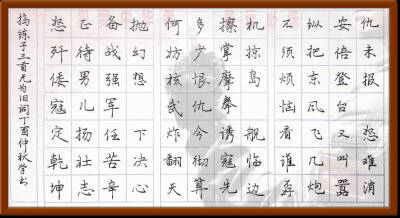 仇未报 怒难消
安倍登台又叫嚣
纵把东风飞几炮
不须烦恼看谁孬
机摩岛 舰临边
擦掌摩拳诱寇先
多少恨仇今彻算
何妨核武炸翻天
抛幻想 下决心
备战强军任苦辛
正待男儿扬壮志
怒歼倭寇定乾坤
捣练子三首无为旧词丁酉仲秋学书